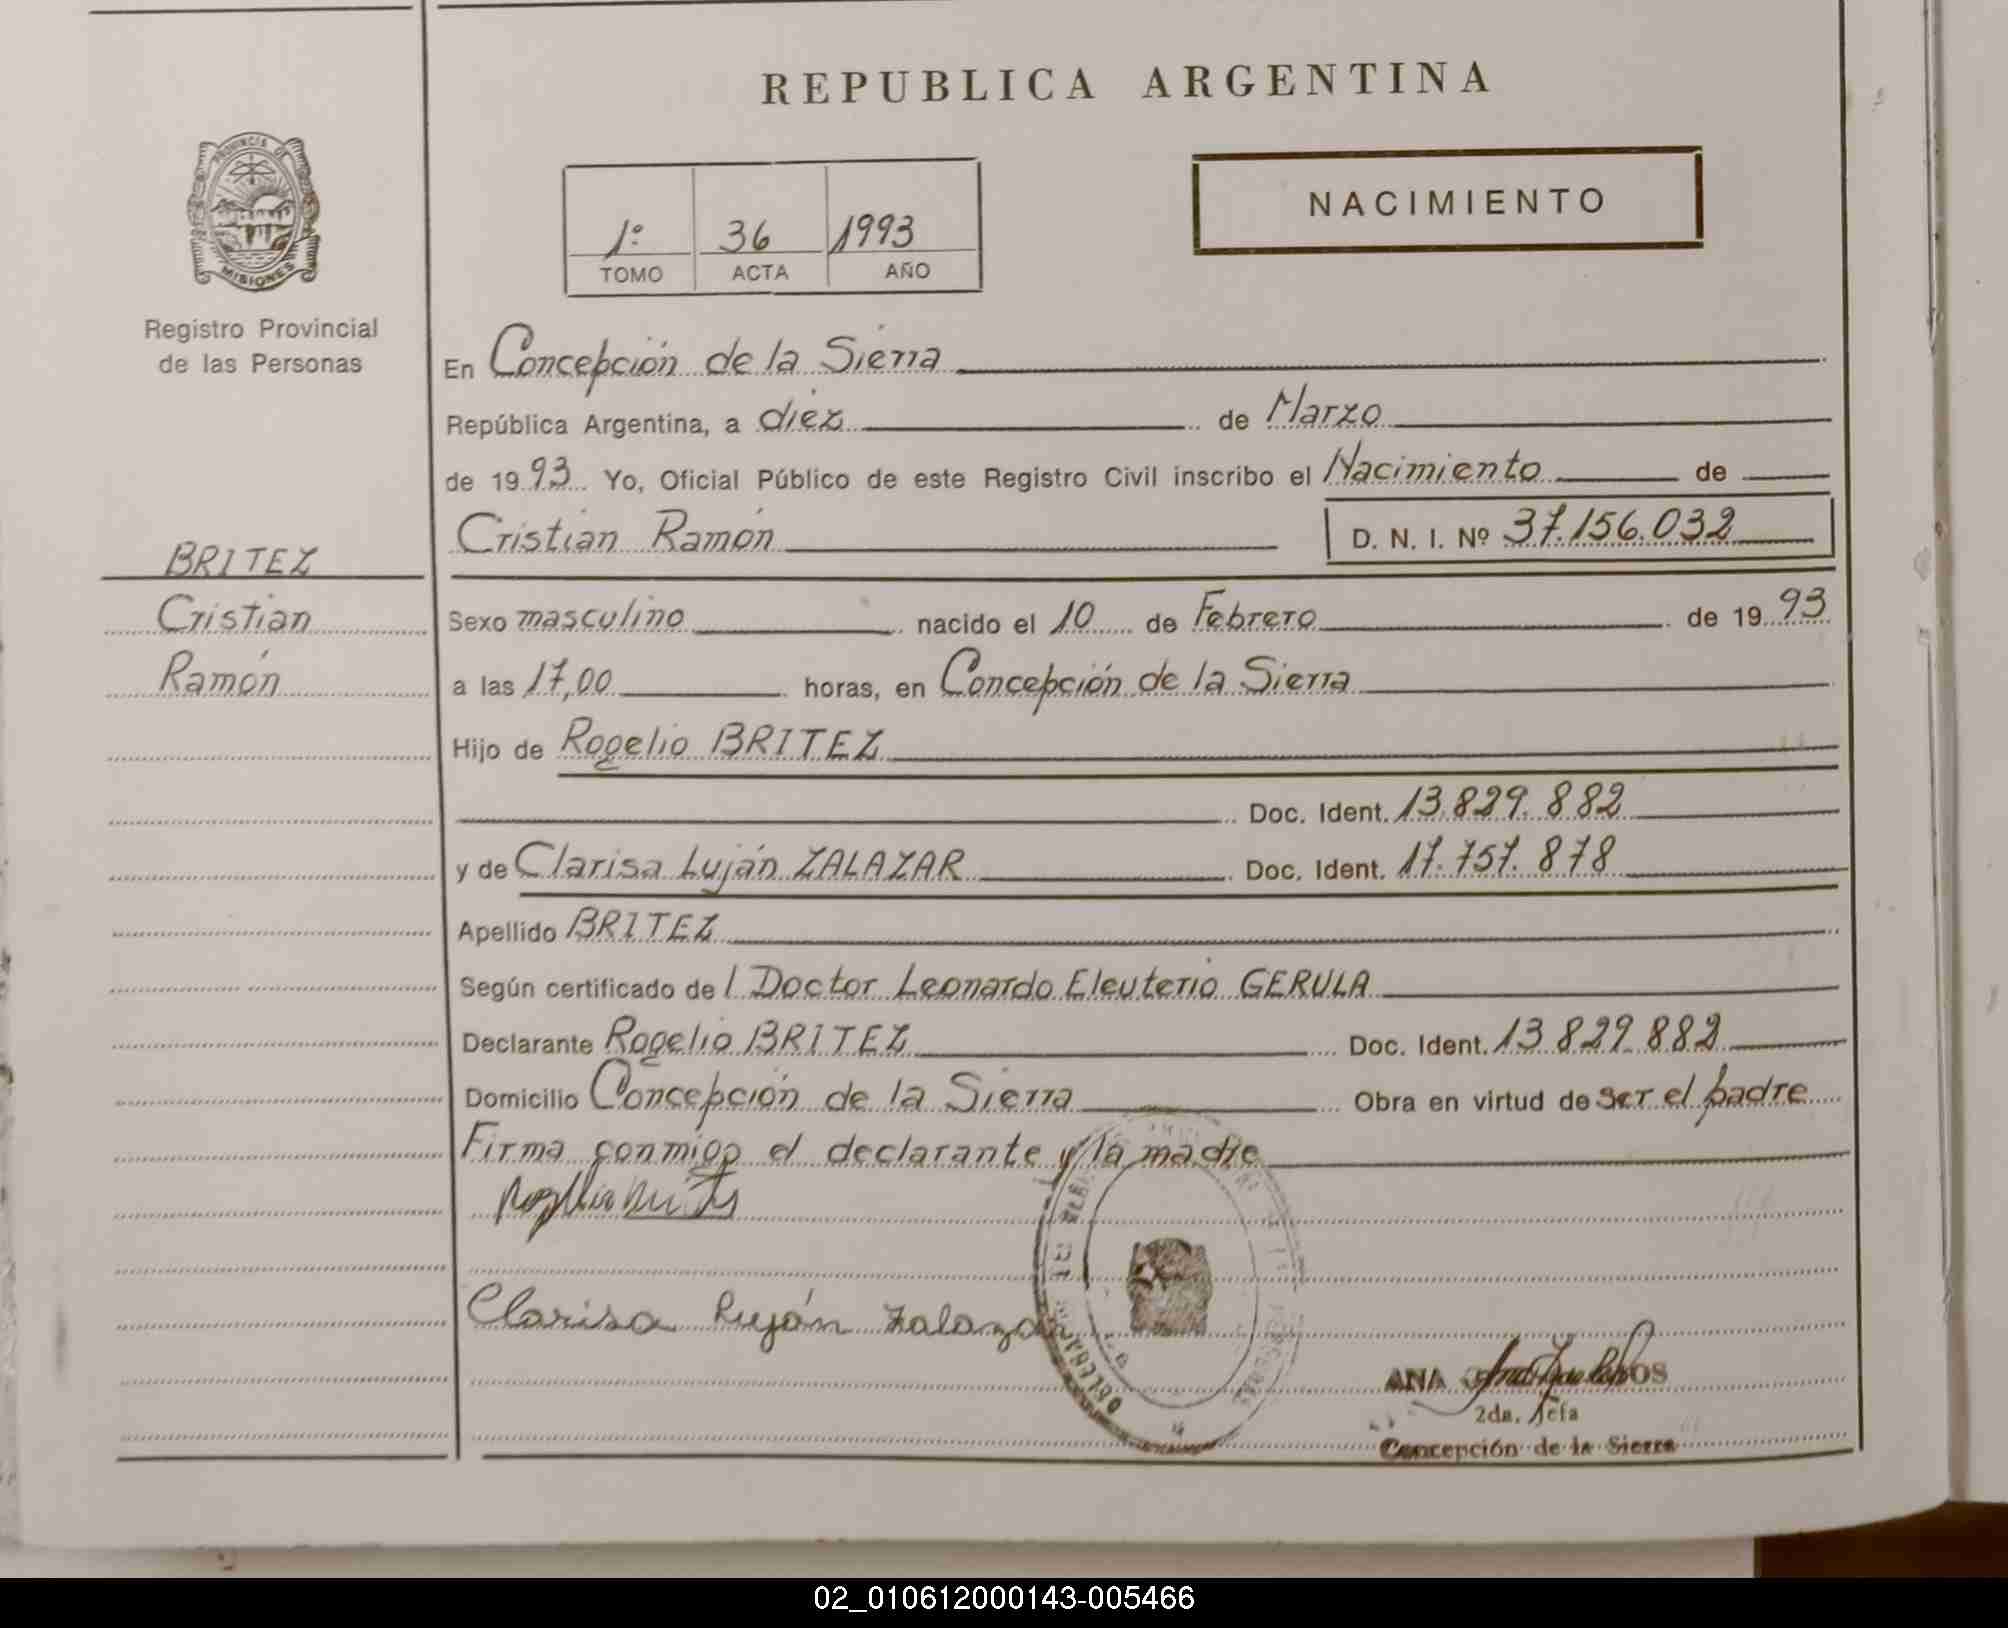 REPUBLICA ARGENTINA
PROVINCIA DE
MISIONES
Registro Provincial
de las Personas
1º 36 1993
TOMO ACTA AÑO
NACIMIENTO
En Concepción de la Sierra
República Argentina, a diez de Marzo
de 1993 Yo, Oficial Público de este Registro Civil inscribo el Nacimiento de
Cristian Ramón D. N. I. Nº 37.156.032
BRITEZ
Cristian
Ramón
Sexo masculino nacido el 10 de Febrero de 1993
a las 17,00 horas, en Concepción de la Sierra
Hijo de Rogelio BRITEZ
Doc. Ident. 13.829.882
y de Clarisa Luján ZALAZAR Doc. Ident. 17.757.878
Apellido BRITEZ
Según certificado de l Doctor Leonardo Eleuterio GERULA
Declarante Rogelio BRITEZ Doc. Ident. 13.829.882
Domicilio Concepción de la Sierra Obra en virtud de ser el padre
Firma conmigo el declarante y la madre
Clarisa Luján Zalazar
ANA
2da. Jefa
Concepción de la Sierra
02_010612000143-005466